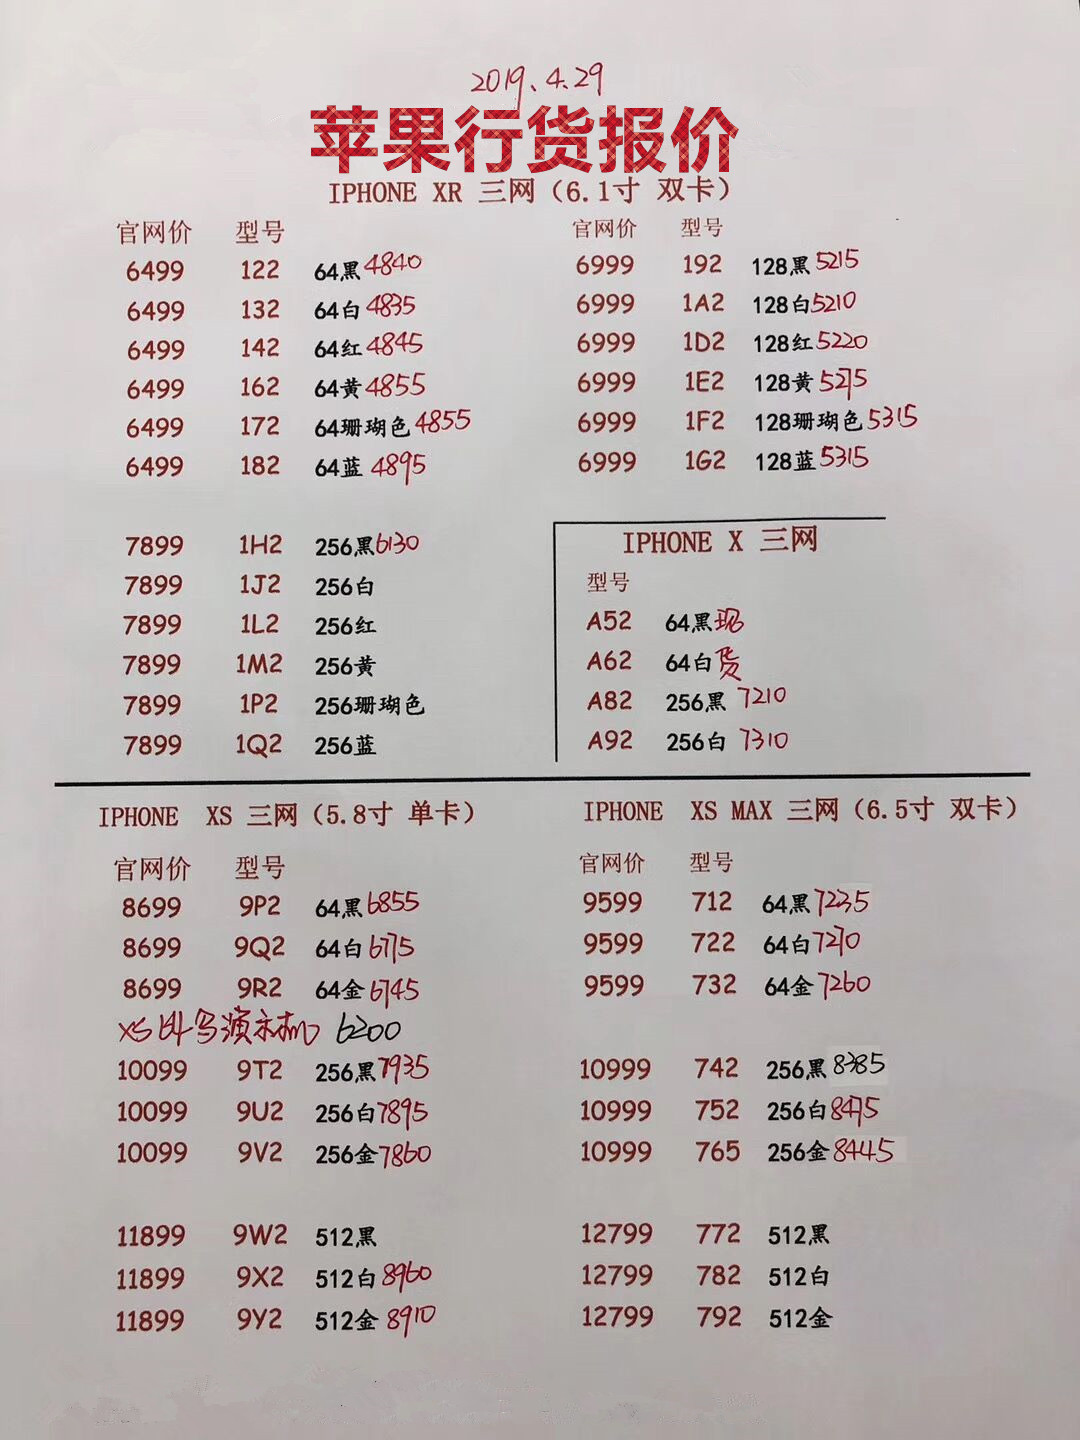 2019.4.29
苹果行货报价
IPHONE XR 三网（6.1寸 双卡）
官网价 型号
6499 122 64黑 4840
6499 132 64白 4835
6499 142 64红 4845
6499 162 64黄 4855
6499 172 64珊瑚色 4855
6499 182 64蓝 4895
官网价 型号
6999 192 128黑 5215
6999 1A2 128白 5210
6999 1D2 128红 5220
6999 1E2 128黄 5275
6999 1F2 128珊瑚色 5315
6999 1G2 128蓝 5315
7899 1H2 256黑 6130
7899 1J2 256白
7899 1L2 256红
7899 1M2 256黄
7899 1P2 256珊瑚色
7899 1Q2 256蓝
IPHONE X 三网
型号
A52 64黑 现
A62 64白 货
A82 256黑 7210
A92 256白 7310
IPHONE XS 三网（5.8寸 单卡）
官网价 型号
8699 9P2 64黑 6855
8699 9Q2 64白 6775
8699 9R2 64金 6745
XS 64 演示机 6200
10099 9T2 256黑 7935
10099 9U2 256白 7895
10099 9V2 256金 7860
11899 9W2 512黑
11899 9X2 512白 8960
11899 9Y2 512金 8910
IPHONE XS MAX 三网（6.5寸 双卡）
官网价 型号
9599 712 64黑 7235
9599 722 64白 7270
9599 732 64金 7260
10999 742 256黑 8385
10999 752 256白 8475
10999 765 256金 8445
12799 772 512黑
12799 782 512白
12799 792 512金